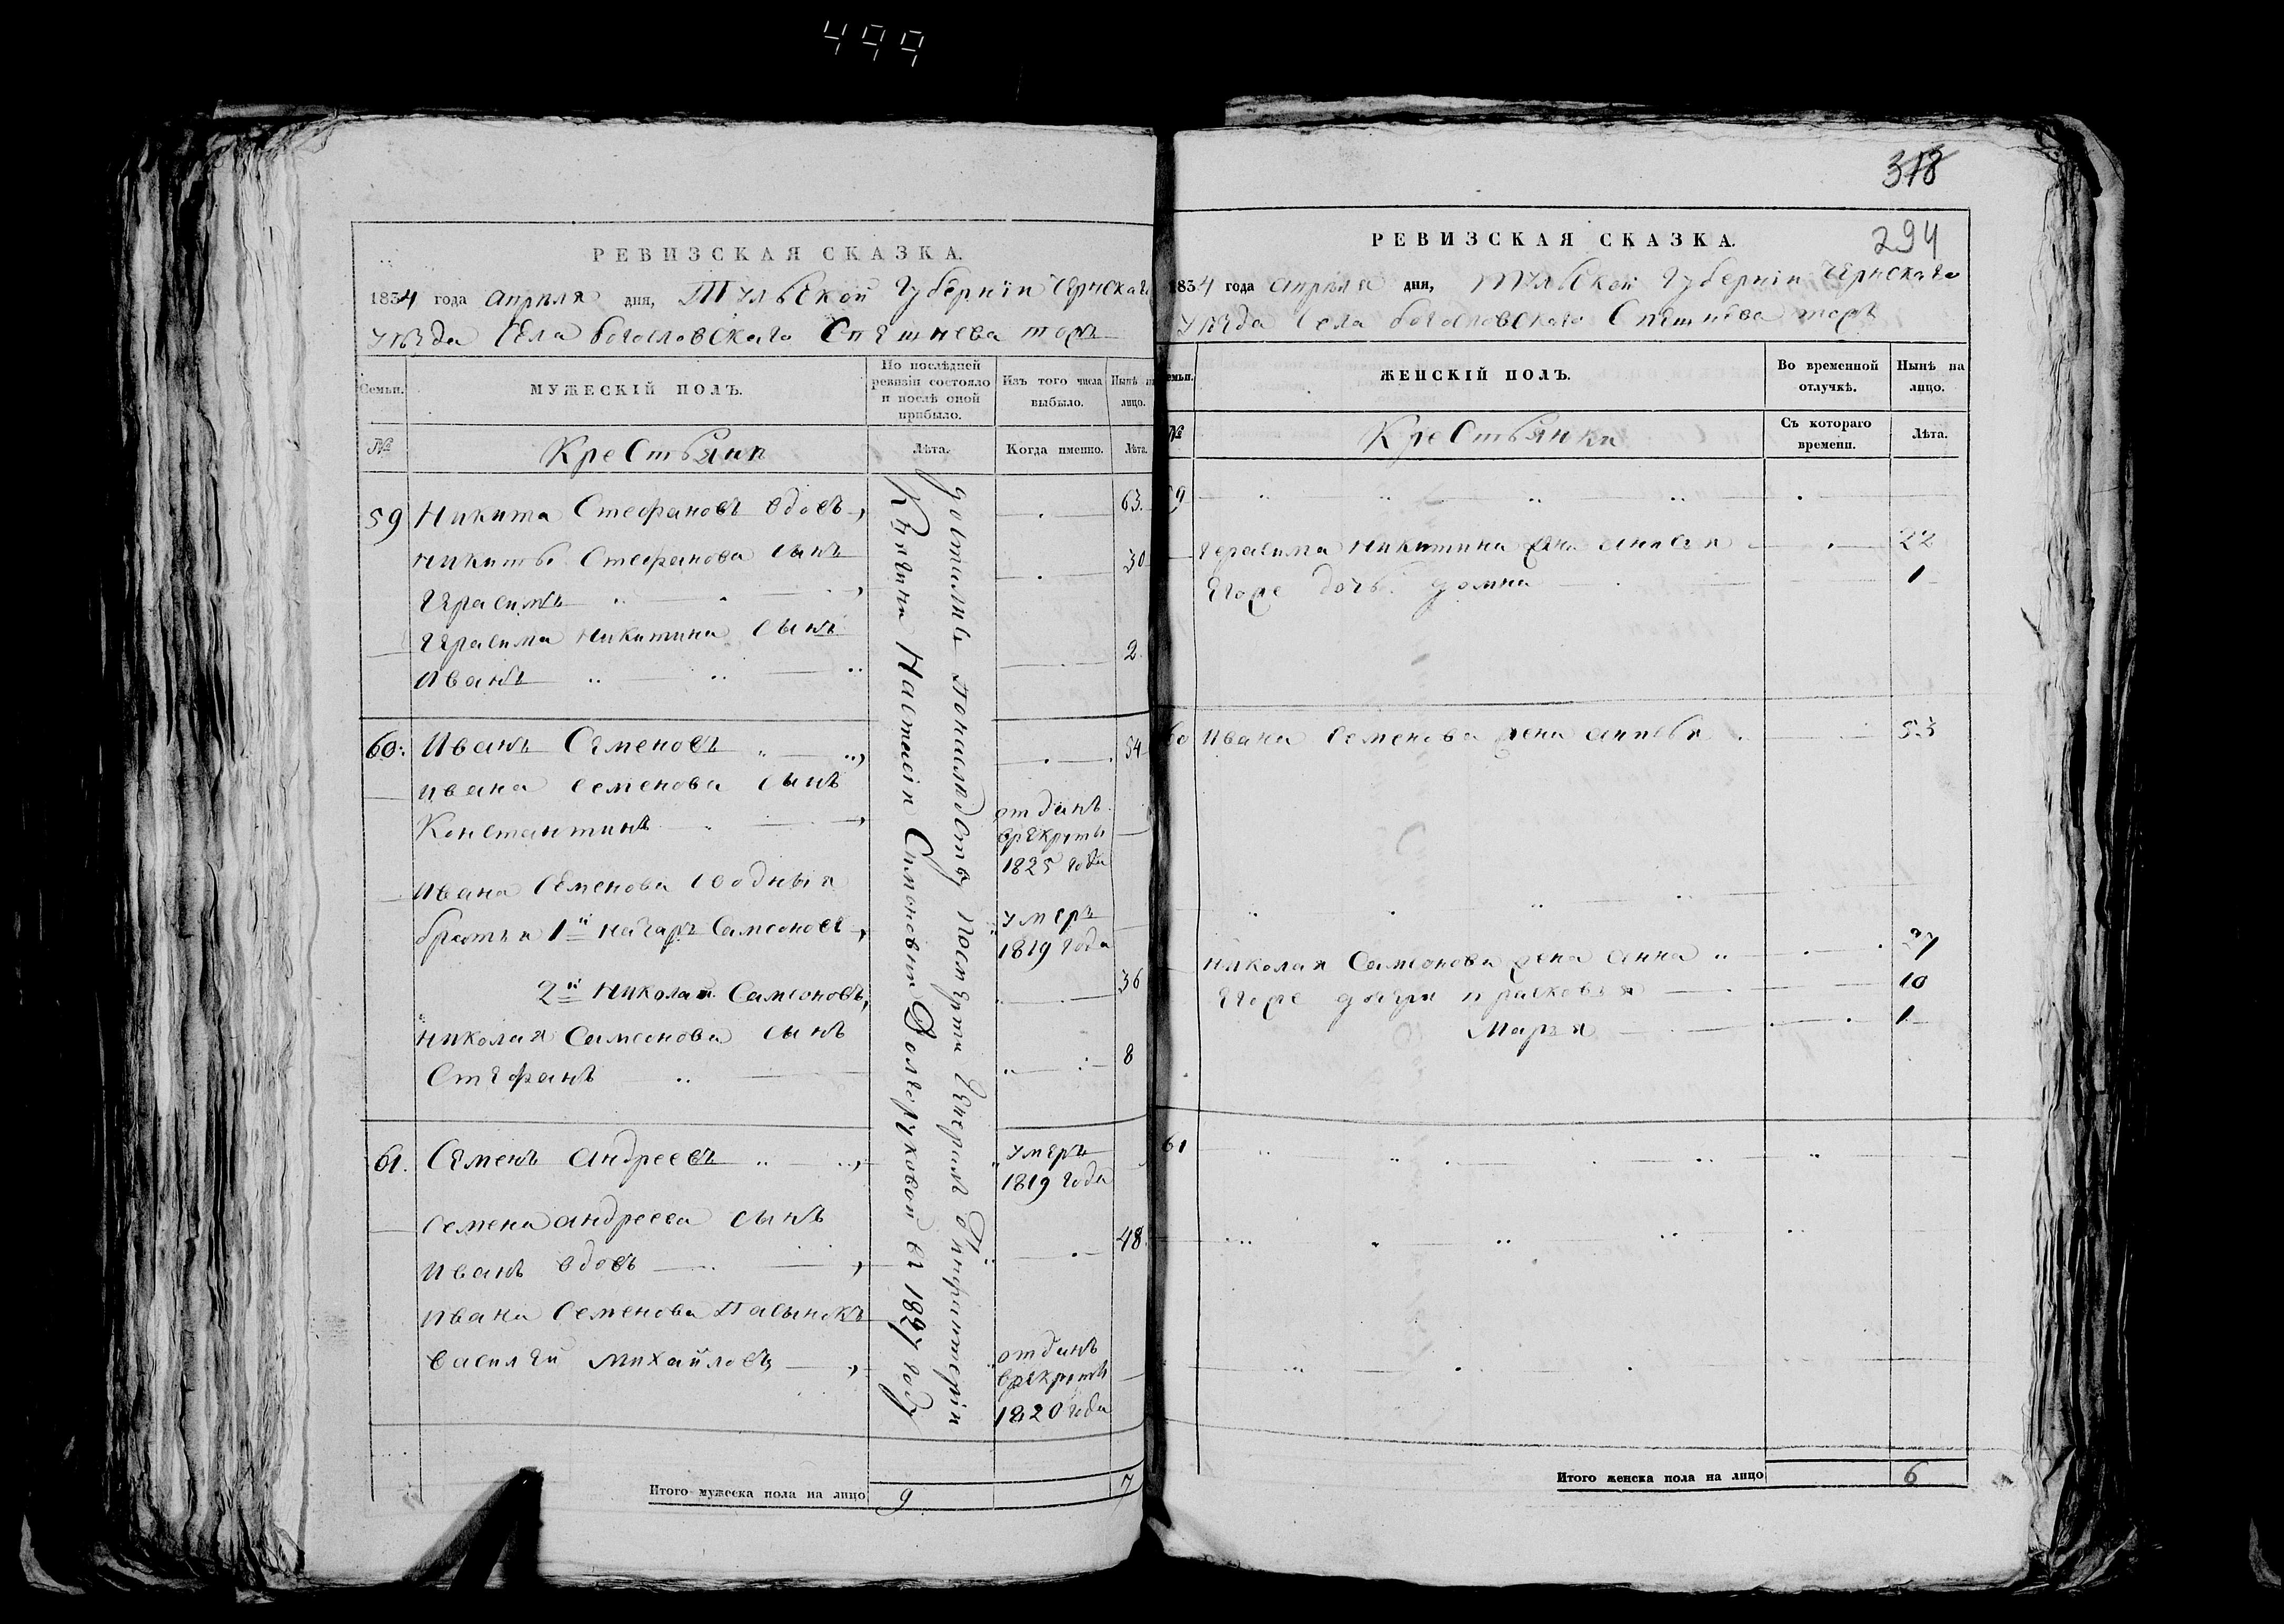 499
РЕВИЗСКАЯ СКАЗКА.
1834 года апреля дня, Тульской Губернїи Чернскаго
уѣзда Села богословскаго Спешнева тожъ
Семьи.
МУЖЕСКІЙ ПОЛЪ.
По послѣдней ревизіи состояло и послѣ оной прибыло.
Изъ того числа выбыло.
Нынѣ на лицо.
№
Крестьяни
Лѣта.
Когда именно.
Лѣта.
59 Никита Стефановъ вдовъ 63.
Никиты Стефанова сынъ
Герасимъ 30
Герасима Никитина сынъ
Иванъ 2.
60. Иванъ Семеновъ 54
Ивана Семенова сынъ
Константинъ отданъ
врекруты
1825 года
Ивана Семенова
братья 1й Самсоновъ умеръ
1819 года
2й Николай Самсоновъ, 36
Николая Самсонова сынъ
Стефанъ 8
61. Семенъ Андреевъ умеръ
1819 года
Семена Андреева сынъ
Иванъ вдовъ 48.
Ивана Семенова Пасынокъ
Василий Михайловъ отданъ
врекруты
1820 года
достались понаследству посмерти Генерала от инфантерїи
Княгини Настасїи Симоновны Долгоруковой въ 1827 году
Итого мужеска пола на лицо 9 7
318
294
РЕВИЗСКАЯ СКАЗКА.
1834 года апреля дня, Тульской Губернїи Чернскаго
уѣзда Села богословскаго Спешнева тожъ
Семьи.
ЖЕНСКІЙ ПОЛЪ.
Во временной отлучкѣ.
Нынѣ на лицо.
№
Крестьянки
Съ котораго времени.
Лѣта.
59
Герасима Никитина жена 22
Егоже дочь Домна 1
60 Ивана Семенова жена 53
Николая Самсонова жена Анна 27
Егоже дочери Прасковья 10
Марья 1
61
Итого женска пола на лицо 6